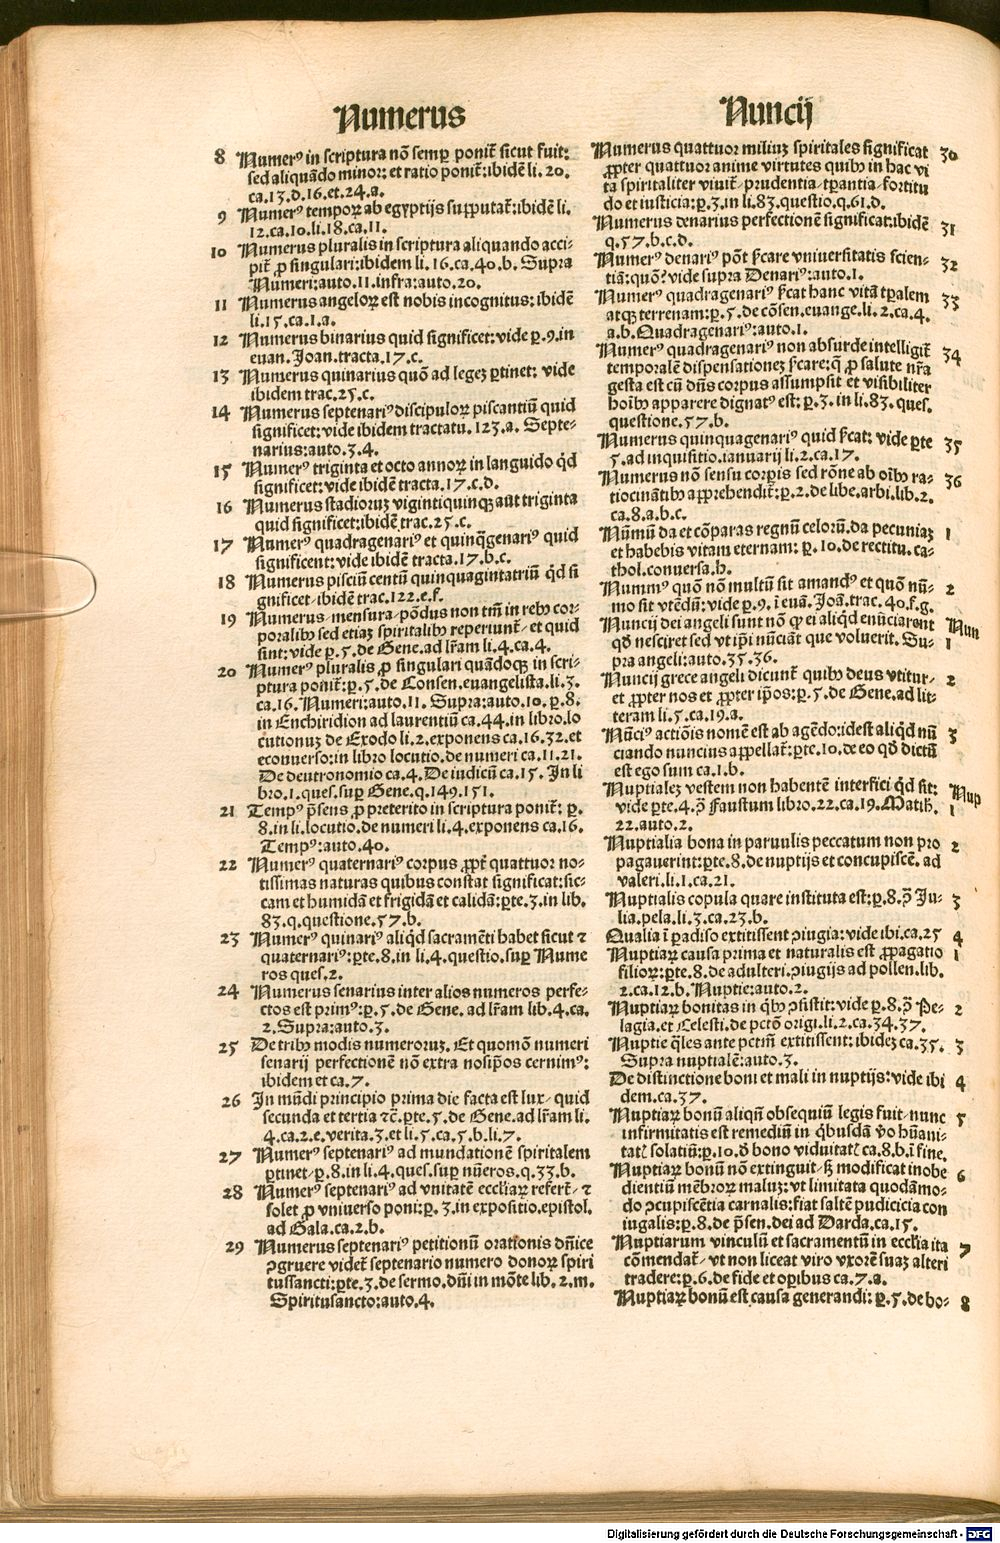 Numerus
8 Numerꝰ in scriptura nõ semꝑ ponit̃ sicut fuit:
sed aliquãdo minor: et ratio ponit̃: ibidẽ li. 20.
ca.13.d.16.et.24.a.
9 Numerꝰ tempoꝝ ab egyptijs supputat̃: ibidẽ li.
12.ca.10.li.18.ca.11.
10 Numerus pluralis in scriptura aliquando acci-
pit̃ ꝓ singulari: ibidem li. 16.ca.40.b. Supra
Numeri: auto.11.infra: auto.20.
11 Numerus angeloꝝ est nobis incognitus: ibidẽ
li.15.ca.1.a.
12 Numerus binarius quid significet: vide ꝑ.9.in
euan. Joan.tracta.17.c.
13 Numerus quinarius quõ ad legeȝ ꝑtinet: vide
ibidem trac.25.c.
14 Numerus septenariꝰ discipuloꝝ piscantiũ quid
significet: vide ibidem tractatu. 123.a. Septe-
narius: auto.3.4.
15 Numerꝰ triginta et octo annoꝝ in languido q̃d
significet: vide ibidẽ tracta.17.c.d.
16 Numerus stadioruȝ vigintiquinqȝ aut triginta
quid significet: ibidẽ trac.25.c.
17 Numerꝰ quadragenariꝰ et quinq̃genariꝰ quid
significent: vide ibidẽ tracta.17.b.c.
18 Numerus pisciũ centũ quinquagintatriũ q̃d si
gnificet / ibidẽ trac.122.e.f.
19 Numerus / mensura / põdus non tm̃ in rebꝰ cor-
poralibꝰ sed etiaȝ spiritalibꝰ reperiunt̃ / et quid
sint: vide ꝑ.5.de Gene.ad lr̃am li.4.ca.4.
20 Numerꝰ pluralis ꝓ singulari quãdoqȝ in scri-
ptura ponit̃: ꝑ.5.de Consen.euangelista.li.3.
ca.16. Numeri: auto.11. Supra: auto.10. ꝑ.8.
in Enchiridion ad laurentiũ ca.44.in libro.lo
cutionuȝ de Exodo li.2.exponens ca.16.32.et
econuerso: in libro locutio.de numeri ca.11.21.
De deutronomio ca.4. De iudicũ ca.15. In li
bro.1.ques.suꝑ Gene.q.149.151.
21 Tempꝰ p̃sens ꝓ preterito in scriptura ponit̃: ꝑ.
8.in li.locutio.de numeri li.4.exponens ca.16.
Tempꝰ: auto.40.
22 Numerꝰ quaternariꝰ corpus ꝓpt̃ quattuor no-
tissimas naturas quibus constat significat: sic-
cam et humidã et frigidã et calidã: ꝑte.3.in lib.
83.q.questione.57.b.
23 Numerꝰ quinariꝰ aliq̃d sacramẽti habet sicut ⁊
quaternariꝰ: ꝑte.8.in li.4.questio.suꝑ Nume
ros ques.2.
24 Numerus senarius inter alios numeros perfe-
ctos est primꝰ: ꝑ.5.de Gene. ad lr̃am lib.4.ca.
2.Supra: auto.3.
25 De tribꝰ modis numeroruȝ. Et quomõ numeri
senarij perfectionẽ nõ extra nosip̃os cernimꝰ:
ibidem et ca.7.
26 In mũdi principio prima die facta est lux / quid
secunda et tertia ⁊c̃.ꝑte.5.de Gene.ad lr̃am li.
4.ca.2.e.verita.3.et li.5.ca.5.b.li.7.
27 Numerꝰ septenariꝰ ad mundationẽ spiritalem
ꝑtinet / ꝑ.8.in li.4.ques.suꝑ nũeros.q.33.b.
28 Numerꝰ septenariꝰ ad vnitatẽ eccl̃iaꝝ refert̃ / ⁊
solet ꝓ vniuerso poni: ꝑ.3.in expositio.epistol.
ad Gala.ca.2.b.
29 Numerus septenariꝰ petitionũ orationis dñice
ꝯgruere videt̃ septenario numero donoꝝ spiri
tussancti: ꝑte.3.de sermo.dñi in mõte lib.2.m.
Spiritusancto: auto.4.
Nuncij
Numerus quattuor miliuȝ spiritales significat 30
ꝓpter quattuor anime virtutes quibꝰ in hac vi
ta spiritaliter viuit̃ / prudentia / tꝑantia / fortitu
do et iusticia: ꝑ.3.in li.83.questio.q.61.d.
Numerus denarius perfectionẽ significat: ibidẽ 31
q.57.b.c.d.
Numerꝰ denariꝰ põt s̃care vniuersitatis scien- 32
tiã: quõ? vide supra Denariꝰ: auto.1.
Numerꝰ quadragenariꝰ s̃cat hanc vitã tꝑalem 33
atqȝ terrenam: ꝑ.5.de cõsen.euange.li.2.ca.4.
a.b.Quadragenariꝰ: auto.1.
Numerꝰ quadragenariꝰ non absurde intelligit̃ 34
temporalẽ dispensationeȝ s̃care: q̃ ꝓ salute nr̃a
gesta est cũ dñs corpus assumpsit et visibiliter
hoĩbꝰ apparere dignatꝰ est: ꝑ.3. in li.83. ques.
questione.57.b.
Numerus quinquagenariꝰ quid s̃cat: vide ꝑte 35
5.ad inquisitio.ianuarij li.2.ca.17.
Numerus nõ sensu corꝑis sed rõne ab oĩbꝰ ra- 36
tiocinãtibꝰ apprehendit̃: ꝑ.2.de libe.arbi.lib.2.
ca.8.a.b.c.
Nũmũ da et cõparas regnũ celorũ.da pecuniaȝ 1
et habebis vitam eternam: ꝑ.10.de rectitu.ca-
thol.conuersa.h.
Nummꝰ quõ nõ multũ sit amandꝰ et quõ nũ- 2
mo sit vtẽdũ: vide ꝑ.9.ĩ euã. Joã.trac.40.f.g.
Nuncij dei angeli sunt nõ ꝙ ei aliq̃d enũciarent Nun
qd̃ nesciret sed vt ip̃i nũciãt que voluerit. Su- 1
pra angeli: auto.35.36.
Nuncij grece angeli dicunt̃ quibꝰ deus vtitur- 2
et ꝓpter nos et ꝓpter ip̃os: ꝑ.5.de Gene.ad lit-
teram li.5.ca.19.a.
Nũciꝰ actiõis nomẽ est ab agẽdo: idest aliq̃d nũ 3
ciando nuncius appellat̃: ꝑte.10.de eo qd̃ dictũ
est ego sum ca.1.b.
Nuptialeȝ vestem non habentẽ interfici q̃d sit: Nup
vide ꝑte.4.ꝯ̃ Faustum libro.22.ca.19.Matth. 1
22.auto.2.
Nuptialia bona in paruulis peccatum non pro 2
pagauerint: ꝑte.8.de nuptijs et concupiscẽ. ad
valeri.li.1.ca.21.
Nuptialis copula quare instituta est: ꝑ.8.ꝯ̃ Ju- 3
lia.pela.li.3.ca.23.b.
Qualia ĩ ꝑadiso extitissent ꝯiugia: vide ibi.ca.25 4
Nuptiaꝝ causa prima et naturalis est ꝓpagatio 1
filioꝝ: ꝑte.8.de adulteri.ꝯiugijs ad pollen.lib.
2.ca.12.b. Nuptie: auto.2.
Nuptiaꝝ bonitas in q̃bꝰ ꝯsistit: vide ꝑ.8.ꝯ̃ Pe- 2
lagia.et Celesti.de pctõ origi.li.2.ca.34.37.
Nuptie q̃les ante pctm̃ extitissent: ibideȝ ca.35. 3
Supra nuptialẽ: auto.3.
De distinctione boni et mali in nuptijs: vide ibi 4
dem.ca.37.
Nuptiaꝝ bonũ aliqñ obsequiũ legis fuit / nunc 5
infirmitatis est remediũ in q̃busdã ṽo hũani-
tatꝭ solatiũ: ꝑ.10.d̃ bono viduitatꝭ ca.8.b.ĩ fine.
Nuptiaꝝ bonũ nõ extinguit / sꝫ modificat inobe 6
dientiũ mẽbroꝝ maluȝ: vt limitata quodãmo-
do ꝯcupiscẽtia carnalis: fiat saltẽ pudicicia con
iugalis: ꝑ.8.de p̃sen.dei ad Darda.ca.15.
Nuptiarum vinculũ et sacramentũ in eccl̃ia ita 7
cõmendat̃ / vt non liceat viro vxorẽ suaȝ alteri
tradere: ꝑ.6.de fide et oꝑibus ca.7.a.
Nuptiaꝝ bonũ est causa generandi: ꝑ.5.de bo- 8
Digitalisierung gefördert durch die Deutsche Forschungsgemeinschaft - DFG